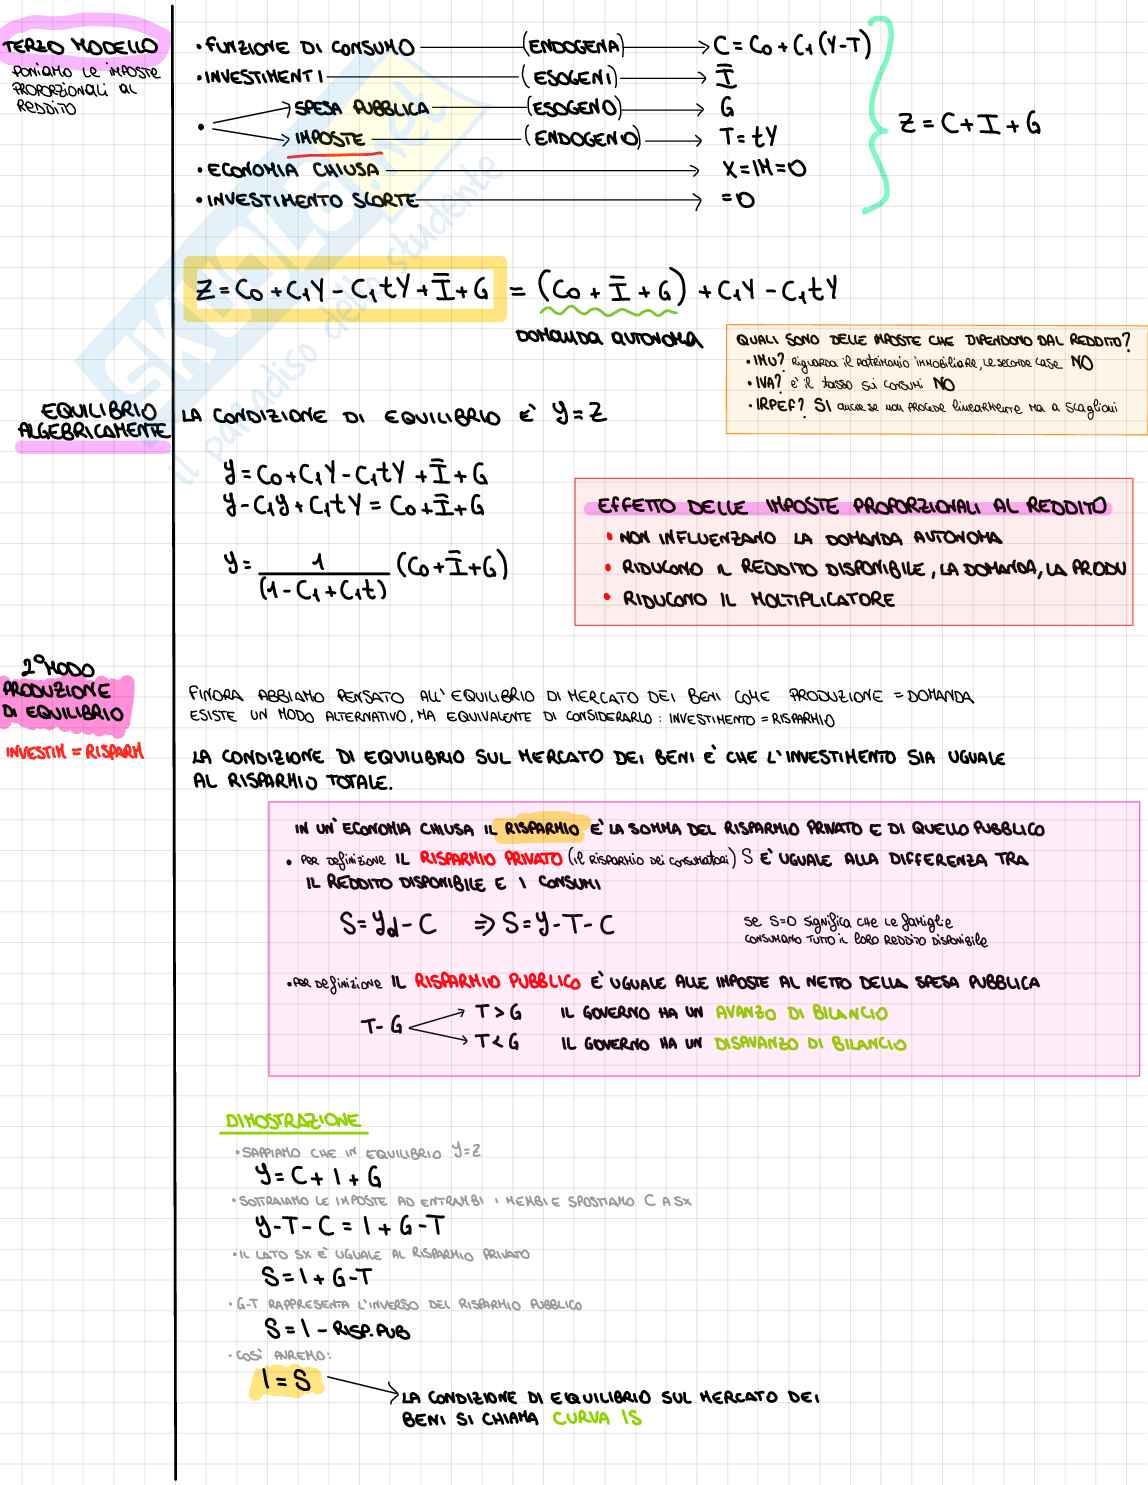 TERZO MODELLO
PONIAMO LE IMPOSTE
PROPORZIONALI AL
REDDITO
• FUNZIONE DI CONSUMO (ENDOGENA) → C = C₀ + C₁ (Y-T)
• INVESTIMENTI (ESOGENI) → Ī
• SPESA PUBBLICA (ESOGENO) → G
IMPOSTE (ENDOGENO) → T = tY
• ECONOMIA CHIUSA → X = IM = 0
• INVESTIMENTO SCORTE → = 0
Z = C + I + G
Z = C₀ + C₁Y - C₁tY + Ī + G = (C₀ + Ī + G) + C₁Y - C₁tY
DOMANDA AUTONOMA
QUALI SONO DELLE IMPOSTE CHE DIPENDONO DAL REDDITO?
• IMU? Riguarda il patrimonio immobiliare, le seconde case NO
• IVA? e' il tasso sui consumi NO
• IRPEF? SI anche se non procede linearmente ma a scaglioni
EQUILIBRIO
ALGEBRICAMENTE
LA CONDIZIONE DI EQUILIBRIO E' Y = Z
Y = C₀ + C₁Y - C₁tY + Ī + G
Y - C₁Y + C₁tY = C₀ + Ī + G
Y = 1 / (1 - C₁ + C₁t) (C₀ + Ī + G)
EFFETTO DELLE IMPOSTE PROPORZIONALI AL REDDITO
• NON INFLUENZANO LA DOMANDA AUTONOMA
• RIDUCONO IL REDDITO DISPONIBILE, LA DOMANDA, LA PRODU
• RIDUCONO IL MOLTIPLICATORE
2° MODO
PRODUZIONE
DI EQUILIBRIO
INVESTIM = RISPARM
FINORA ABBIAMO PENSATO ALL'EQUILIBRIO DI MERCATO DEI BENI COME PRODUZIONE = DOMANDA
ESISTE UN MODO ALTERNATIVO, MA EQUIVALENTE DI CONSIDERARLO: INVESTIMENTO = RISPARMIO
LA CONDIZIONE DI EQUILIBRIO SUL MERCATO DEI BENI E' CHE L'INVESTIMENTO SIA UGUALE
AL RISPARMIO TOTALE.
IN UN'ECONOMIA CHIUSA IL RISPARMIO E' LA SOMMA DEL RISPARMIO PRIVATO E DI QUELLO PUBBLICO
• PER definizione IL RISPARMIO PRIVATO (il RISPARMIO DEI CONSUMATORI) S E' UGUALE ALLA DIFFERENZA TRA
IL REDDITO DISPONIBILE E I CONSUMI
S = Yd - C ⇒ S = Y - T - C
SE S=0 Significa CHE LE famiglie
CONSUMANO TUTTO IL LORO REDDITO DISPONIBILE
• PER definizione IL RISPARMIO PUBBLICO E' UGUALE ALLE IMPOSTE AL NETTO DELLA SPESA PUBBLICA
T - G
T > G IL GOVERNO HA UN AVANZO DI BILANCIO
T < G IL GOVERNO HA UN DISAVANZO DI BILANCIO
DIMOSTRAZIONE
• SAPPIAMO CHE IN EQUILIBRIO Y=Z
Y = C + I + G
• SOTTRAIAMO LE IMPOSTE AD ENTRAMBI I MEMBI E SPOSTIAMO C A SX
Y - T - C = I + G - T
• IL LATO SX E' UGUALE AL RISPARMIO PRIVATO
S = I + G - T
• G-T RAPPRESENTA L'INVERSO DEL RISPARMIO PUBBLICO
S = I - RISP. PUB
• COSÌ AVREMO:
I = S
LA CONDIZIONE DI EQUILIBRIO SUL MERCATO DEI
BENI SI CHIAMA CURVA IS
SKUOLA.net
il paradiso dello studente